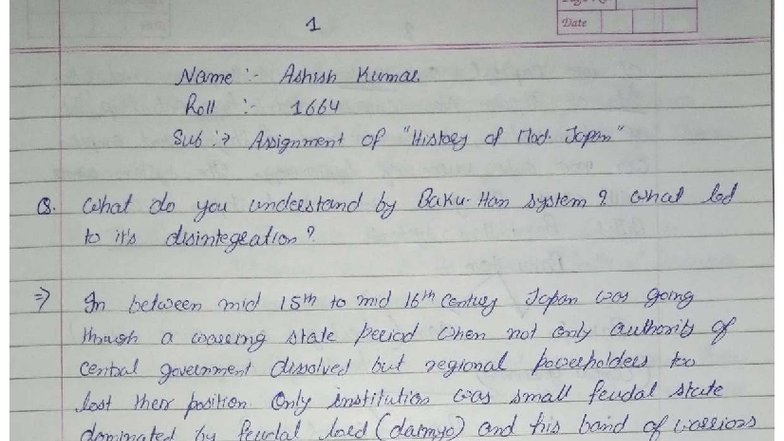 1
Date
Name :- Ashish Kumar
Roll :- 1664
Sub :→ Assignment of "History of Mod. Japan"
Q. What do you understand by Baku-Han system ? What led
to it's disintegration ?
⇒ In between mid 15th to mid 16th Century Japan was going
through a warring state period when not only authority of
central government dissolved but regional powerholders too
lost their position. Only institution was small feudal state
dominated by feudal lord (daimyo) and his band of warriors